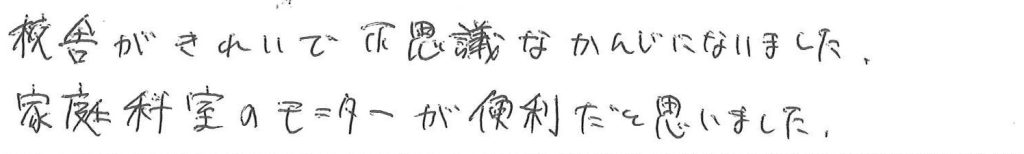 校舎がきれいで不思議なかんじになりました.
家庭科室のモニターが便利だと思いました.